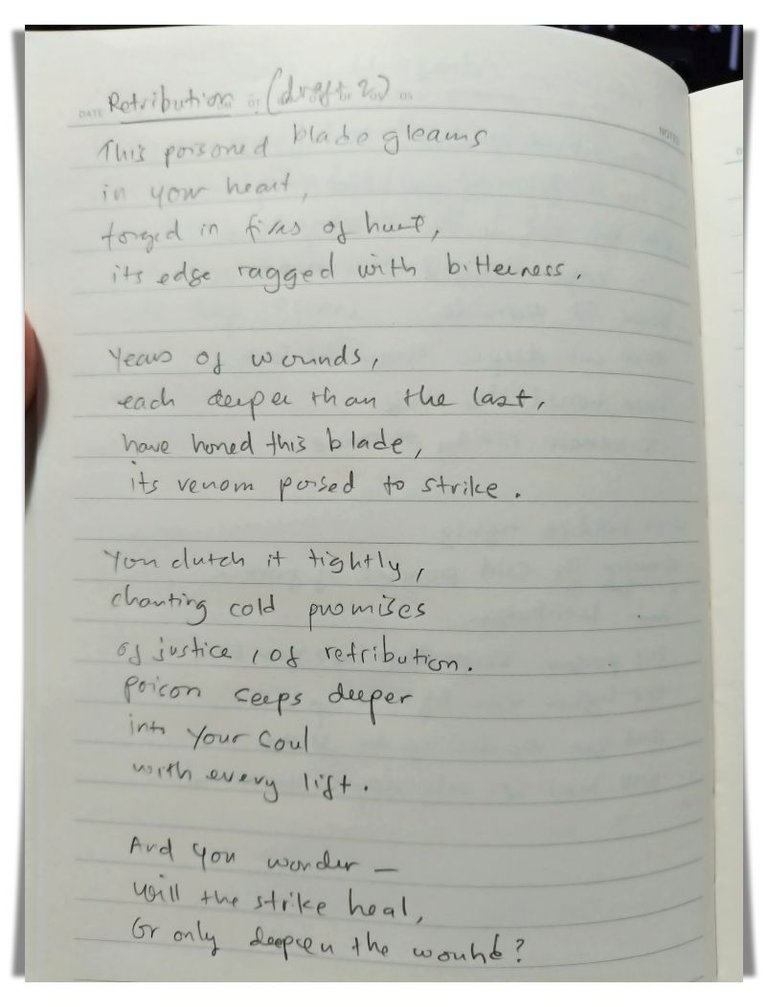 DATE Retribution (draft 2)
NOTES
This poisoned blade gleams
in your heart,
forged in fires of hurt,
its edge ragged with bitterness.
Years of wounds,
each deeper than the last,
have honed this blade,
its venom poised to strike.
You clutch it tightly,
chanting cold promises
of justice, of retribution.
poison seeps deeper
into your soul
with every lift.
And you wonder —
will the strike heal,
Or only deepen the wound?